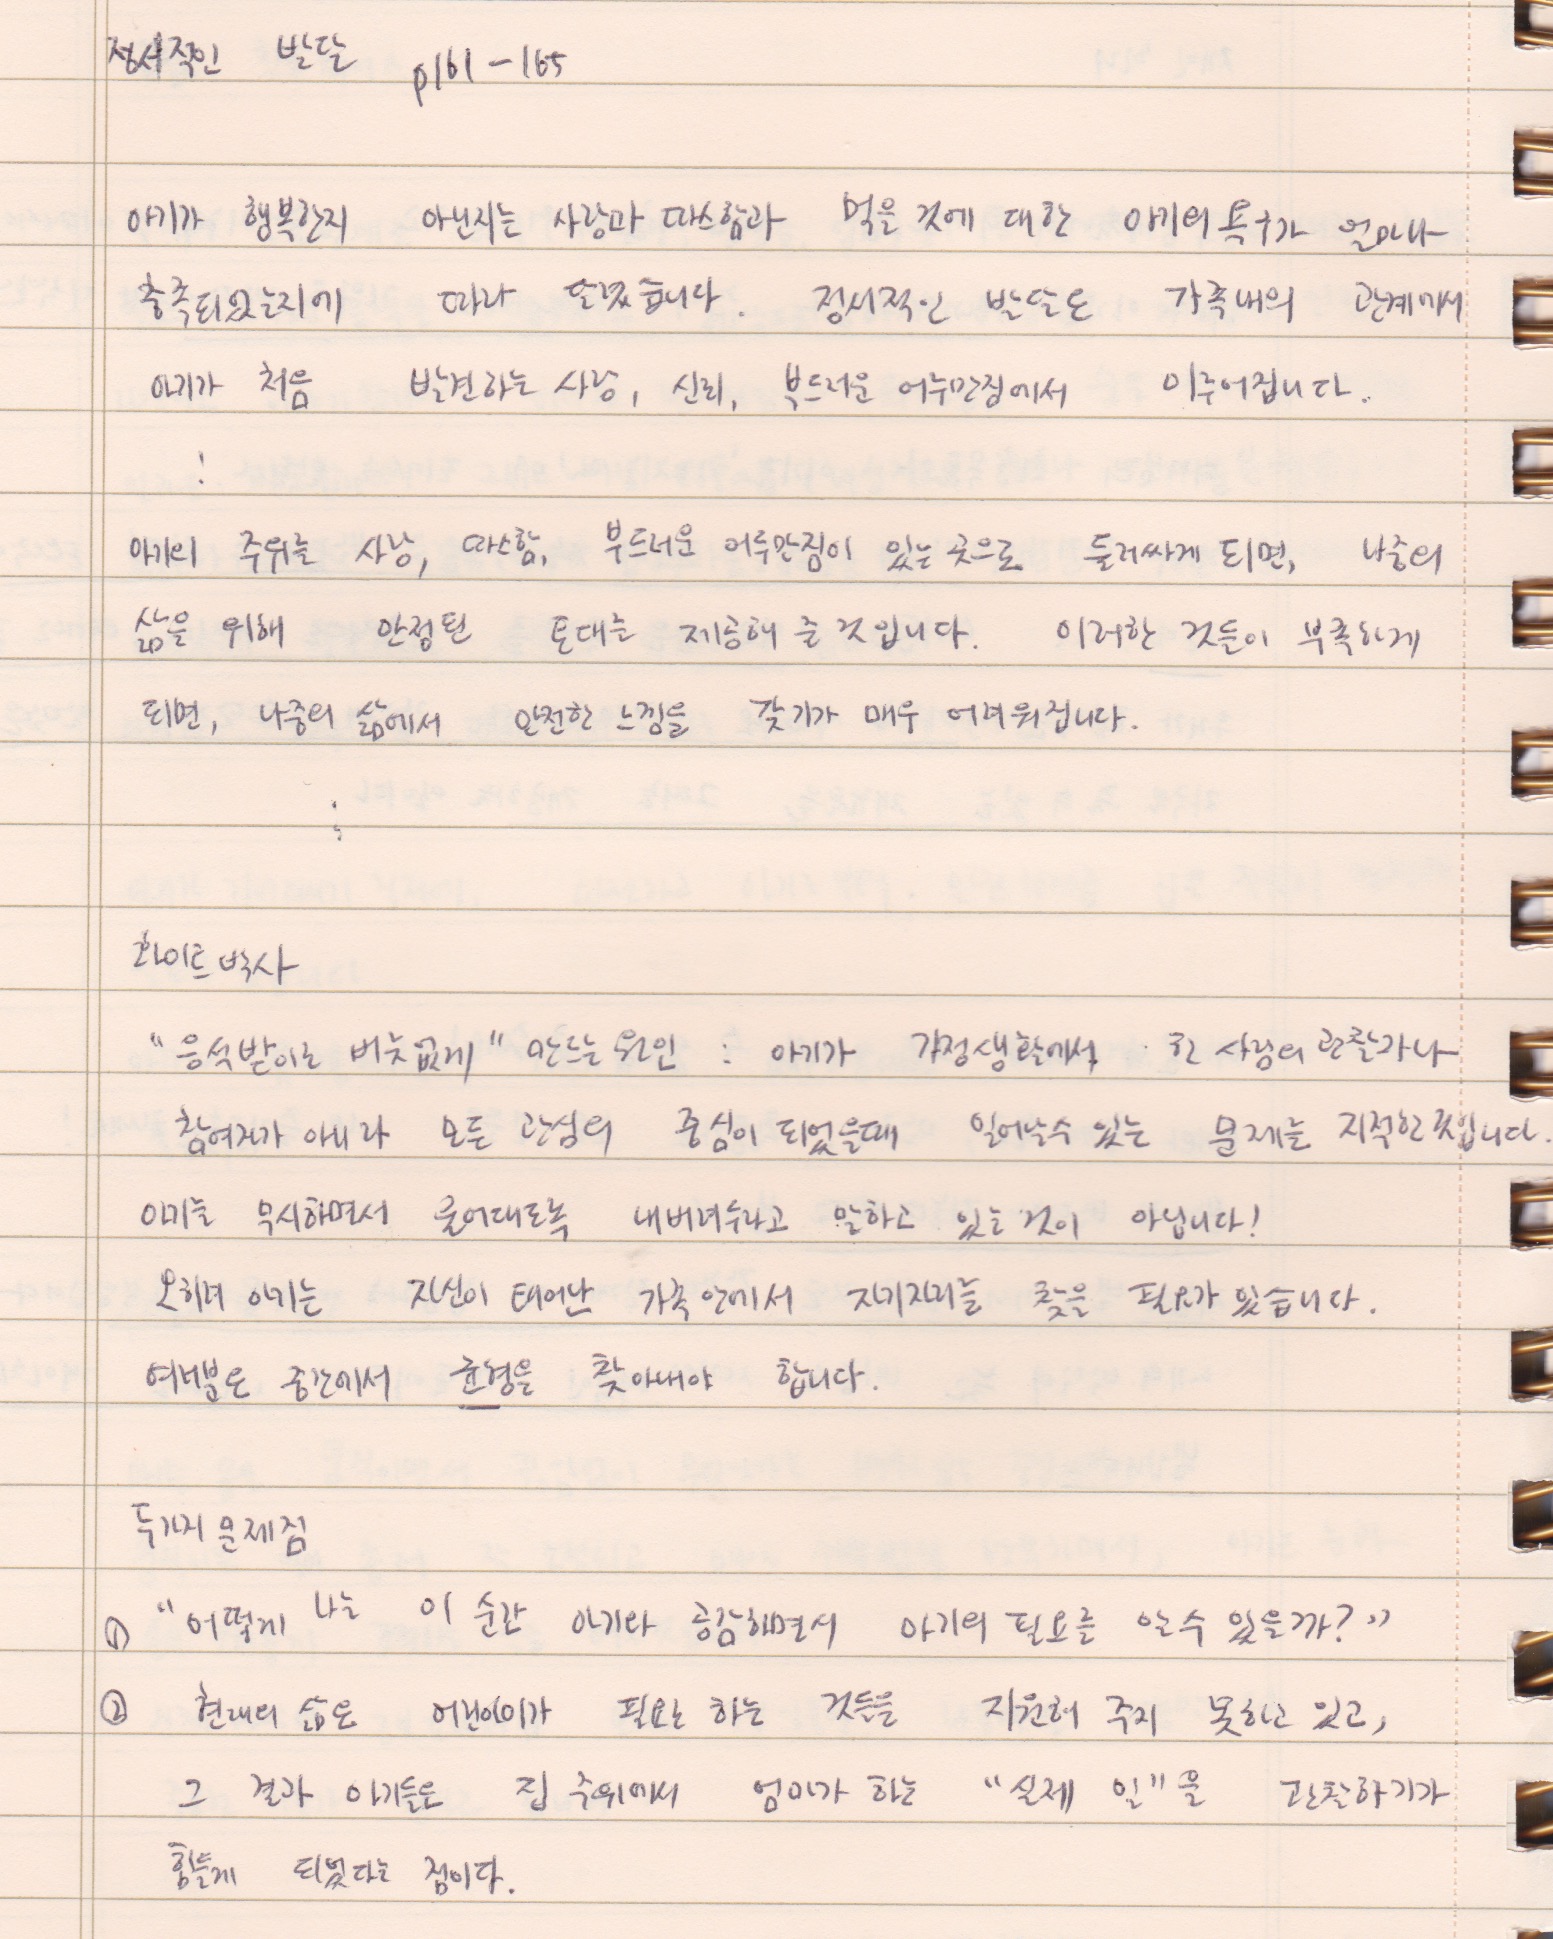 정서적인 발달 p161-165
아기가 행복한지 아닌지는 사랑과 따스함과 먹을 것에 대한 아기의 욕구가 얼마나
충족되었는지에 따라 달렸습니다. 정서적인 발달은 가족내의 관계에서
아기가 처음 발견하는 사랑, 신뢰, 부드러운 어루만짐에서 이루어집니다.
:
아기의 주위를 사랑, 따스함, 부드러운 어루만짐이 있는 곳으로 둘러싸게 되면, 나중의
삶을 위해 안정된 토대를 제공해 준 것입니다. 이러한 것들이 부족하게
되면, 나중의 삶에서 안전한 느낌을 갖기가 매우 어려워집니다.
:
화이트 박사
"응석받이로 버릇없게" 만드는 원인 : 아기가 가정생활에서 한 사람의 관찰자나
참여자가 아니라 모든 관심의 중심이 되었을때 일어날수 있는 문제를 지적한 것입니다.
아기를 무시하면서 울어대도록 내버려두라고 말하고 있는 것이 아닙니다!
오히려 아기는 자신이 태어난 가족 안에서 자기자리를 찾을 필요가 있습니다.
여러분은 중간에서 균형을 찾아내야 합니다.
두가지 문제점
① "어떻게 나는 이 순간 아기와 공감하면서 아기의 필요를 알 수 있을까?"
② 현대의 삶은 어린이가 필요로 하는 것들을 지원해 주지 못하고 있고,
그 결과 아기들은 집 주위에서 엄마가 하는 "실제 일"을 관찰하기가
힘들게 되었다는 점이다.